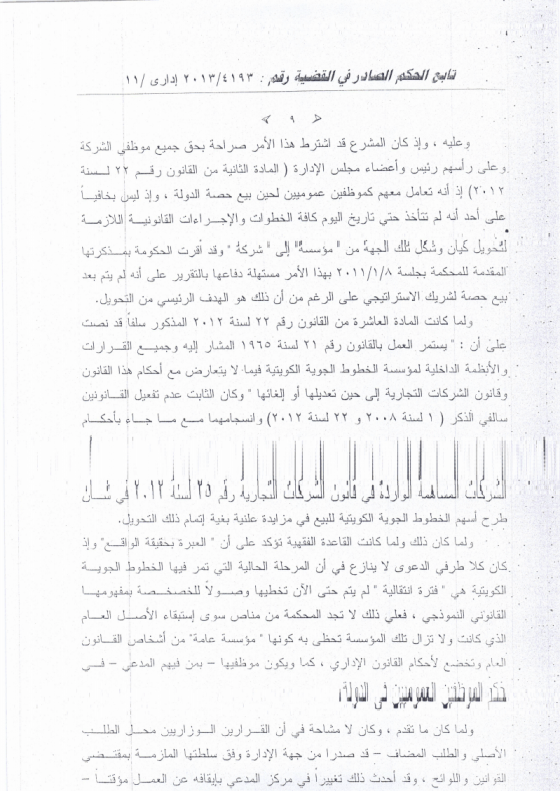 تابع الحكم الصادر في القضية رقم : ٢٠١٣/٤١٩٣ إدارى /١١
﴿ ٩ ﴾
وعليه ، وإذ كان المشرع قد اشترط هذا الأمر صراحة بحق جميع موظفي الشركة
وعلى رأسهم رئيس وأعضاء مجلس الإدارة ( المادة الثانية من القانون رقم ٢٢ لسنة
٢٠١٢) إذ أنه تعامل معهم كموظفين عموميين لحين بيع حصة الدولة ، وإذ ليس بخافياً
على أحد أنه لم تتأخذ حتي تاريخ اليوم كافة الخطوات والإجراءات القانونية اللازمة
لتحويل كيان وشكل تلك الجهة من " مؤسسة" إلى " شركة " وقد أقرت الحكومة بمذكرتها
المقدمة للمحكمة بجلسة ٢٠١١/١/٨ بهذا الأمر مستهلة دفاعها بالتقرير على أنه لم يتم بعد
بيع حصة لشريك الاستراتيجي على الرغم من أن ذلك هو الهدف الرئيسي من التحويل.
ولما كانت المادة العاشرة من القانون رقم ٢٢ لسنة ٢٠١٢ المذكور سلفاً قد نصت
على أن : " يستمر العمل بالقانون رقم ٢١ لسنة ١٩٦٥ المشار إليه وجميع القرارات
والأنظمة الداخلية لمؤسسة الخطوط الجوية الكويتية فيما لا يتعارض مع أحكام هذا القانون
وقانون الشركات التجارية إلى حين تعديلها أو إلغائها " وكان الثابت عدم تفعيل القانونين
سالفي الذكر ( ١ لسنة ٢٠٠٨ و ٢٢ لسنة ٢٠١٢) وانسجامهما مع ما جاء بأحكام
الشركات المساهمة الواردة في قانون الشركات التجارية رقم ٢٥ لسنة ٢٠١٢ في شأن
طرح أسهم الخطوط الجوية الكويتية للبيع في مزايدة علنية بغية إتمام ذلك التحويل.
ولما كان ذلك ولما كانت القاعدة الفقهية تؤكد على أن " العبرة بحقيقة الواقع" وإذ
كان كلا طرفي الدعوى لا ينازع في أن المرحلة الحالية التي تمر فيها الخطوط الجوية
الكويتية هي " فترة انتقالية " لم يتم حتى الآن تخطيها وصولاً للخصخصة بمفهومها
القانوني النموذجي ، فعلي ذلك لا تجد المحكمة من مناص سوى إستبقاء الأصل العام
الذي كانت ولا تزال تلك المؤسسة تحظى به كونها " مؤسسة عامة" من أشخاص القانون
العام وتخضع لأحكام القانون الإداري ، كما ويكون موظفيها – بمن فيهم المدعي – في
حكم الموظفين العموميين في الدولة،
ولما كان ما تقدم ، وكان لا مشاحة في أن القرارين الوزاريين محل الطلب
الأصلي والطلب المضاف – قد صدرا من جهة الإدارة وفق سلطتها الملزمة بمقتضي
القوانين واللوائح ، وقد أحدث ذلك تغييراً في مركز المدعي بإيقافه عن العمل مؤقتاً –